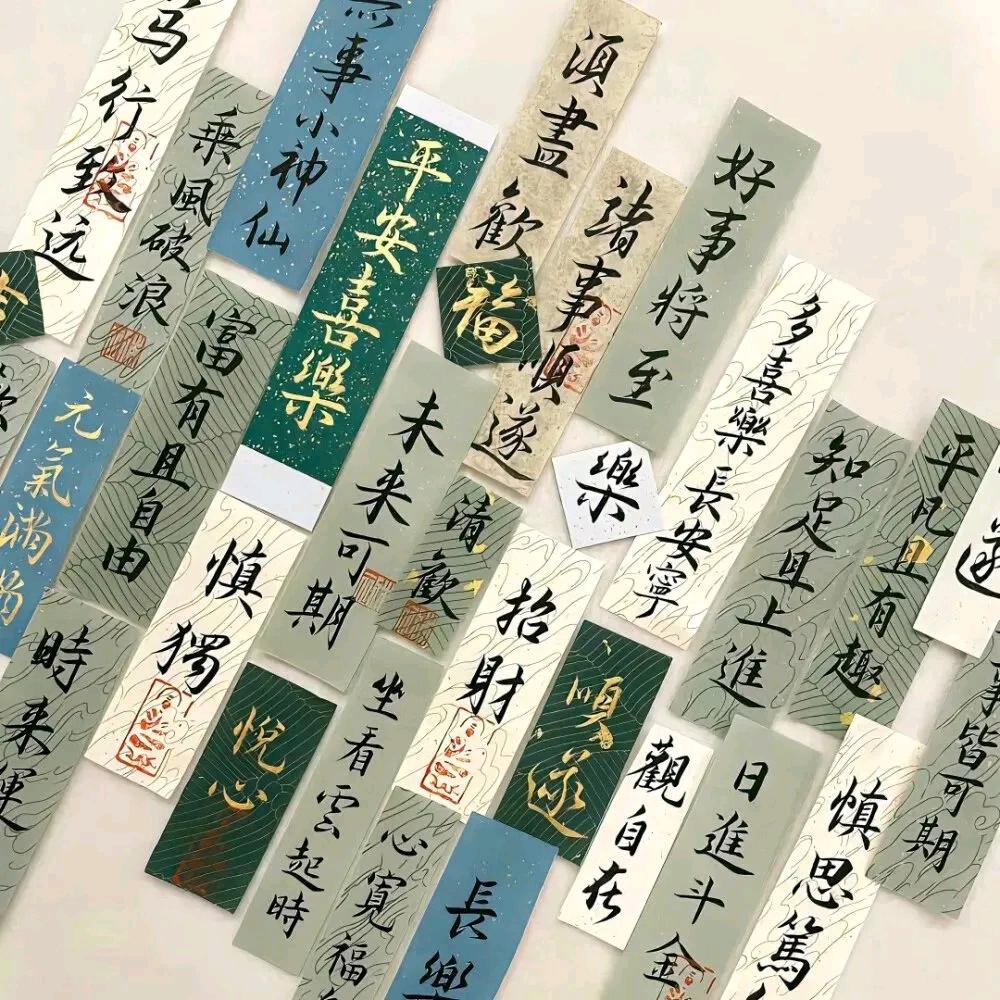 笃行致远
乘風破浪
无事小神仙
平安喜樂
須盡歡
福
諸事順遂
好事将至
富有且自由
元氣满满
未来可期
清歡
樂
多喜樂長安寧
知足且上進
平凡且有趣
遂
慎獨
招財
順遂
時来運
悦心
坐看雲起時
心寬福
長樂
觀自在
日進斗金
慎思篤
事皆可期